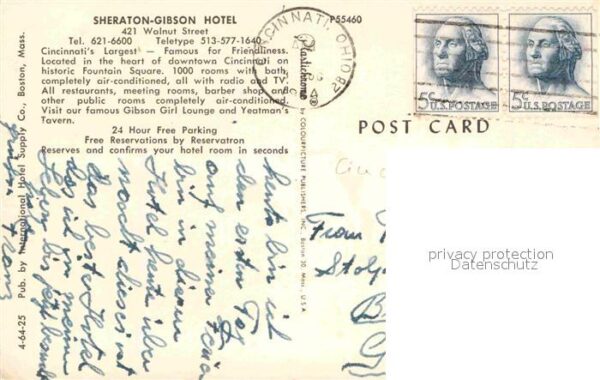 SHERATON-GIBSON HOTEL
421 Walnut Street
Tel. 621-6600 Teletype 513-577-1640
Cincinnati's Largest — Famous for Friendliness.
Located in the heart of downtown Cincinnati on
historic Fountain Square. 1000 rooms with bath,
completely air-conditioned, all with radio and TV.
All restaurants, meeting rooms, barber shop and
other public rooms completely air-conditioned.
Visit our famous Gibson Girl Lounge and Yeatman's
Tavern.
24 Hour Free Parking
Free Reservations by Reservatron
Reserves and confirms your hotel room in seconds
4-64-25 Pub. by International Hotel Supply Co., Boston, Mass.
P55460
CINCINNATI, OHIO
28
Plastichrome ®
by COLOURPICTURE PUBLISHERS, INC., Boston 30, Mass., U.S.A.
5¢ U.S. POSTAGE
5¢ U.S. POSTAGE
POST CARD
heute bin ich
den ersten Tag
auf meiner
bin in diesem
Hotel heute über
nacht dieses ist
das beste Hotel
das ich in meinem
Leben bis jetzt
Frau
privacy protection
Datenschutz